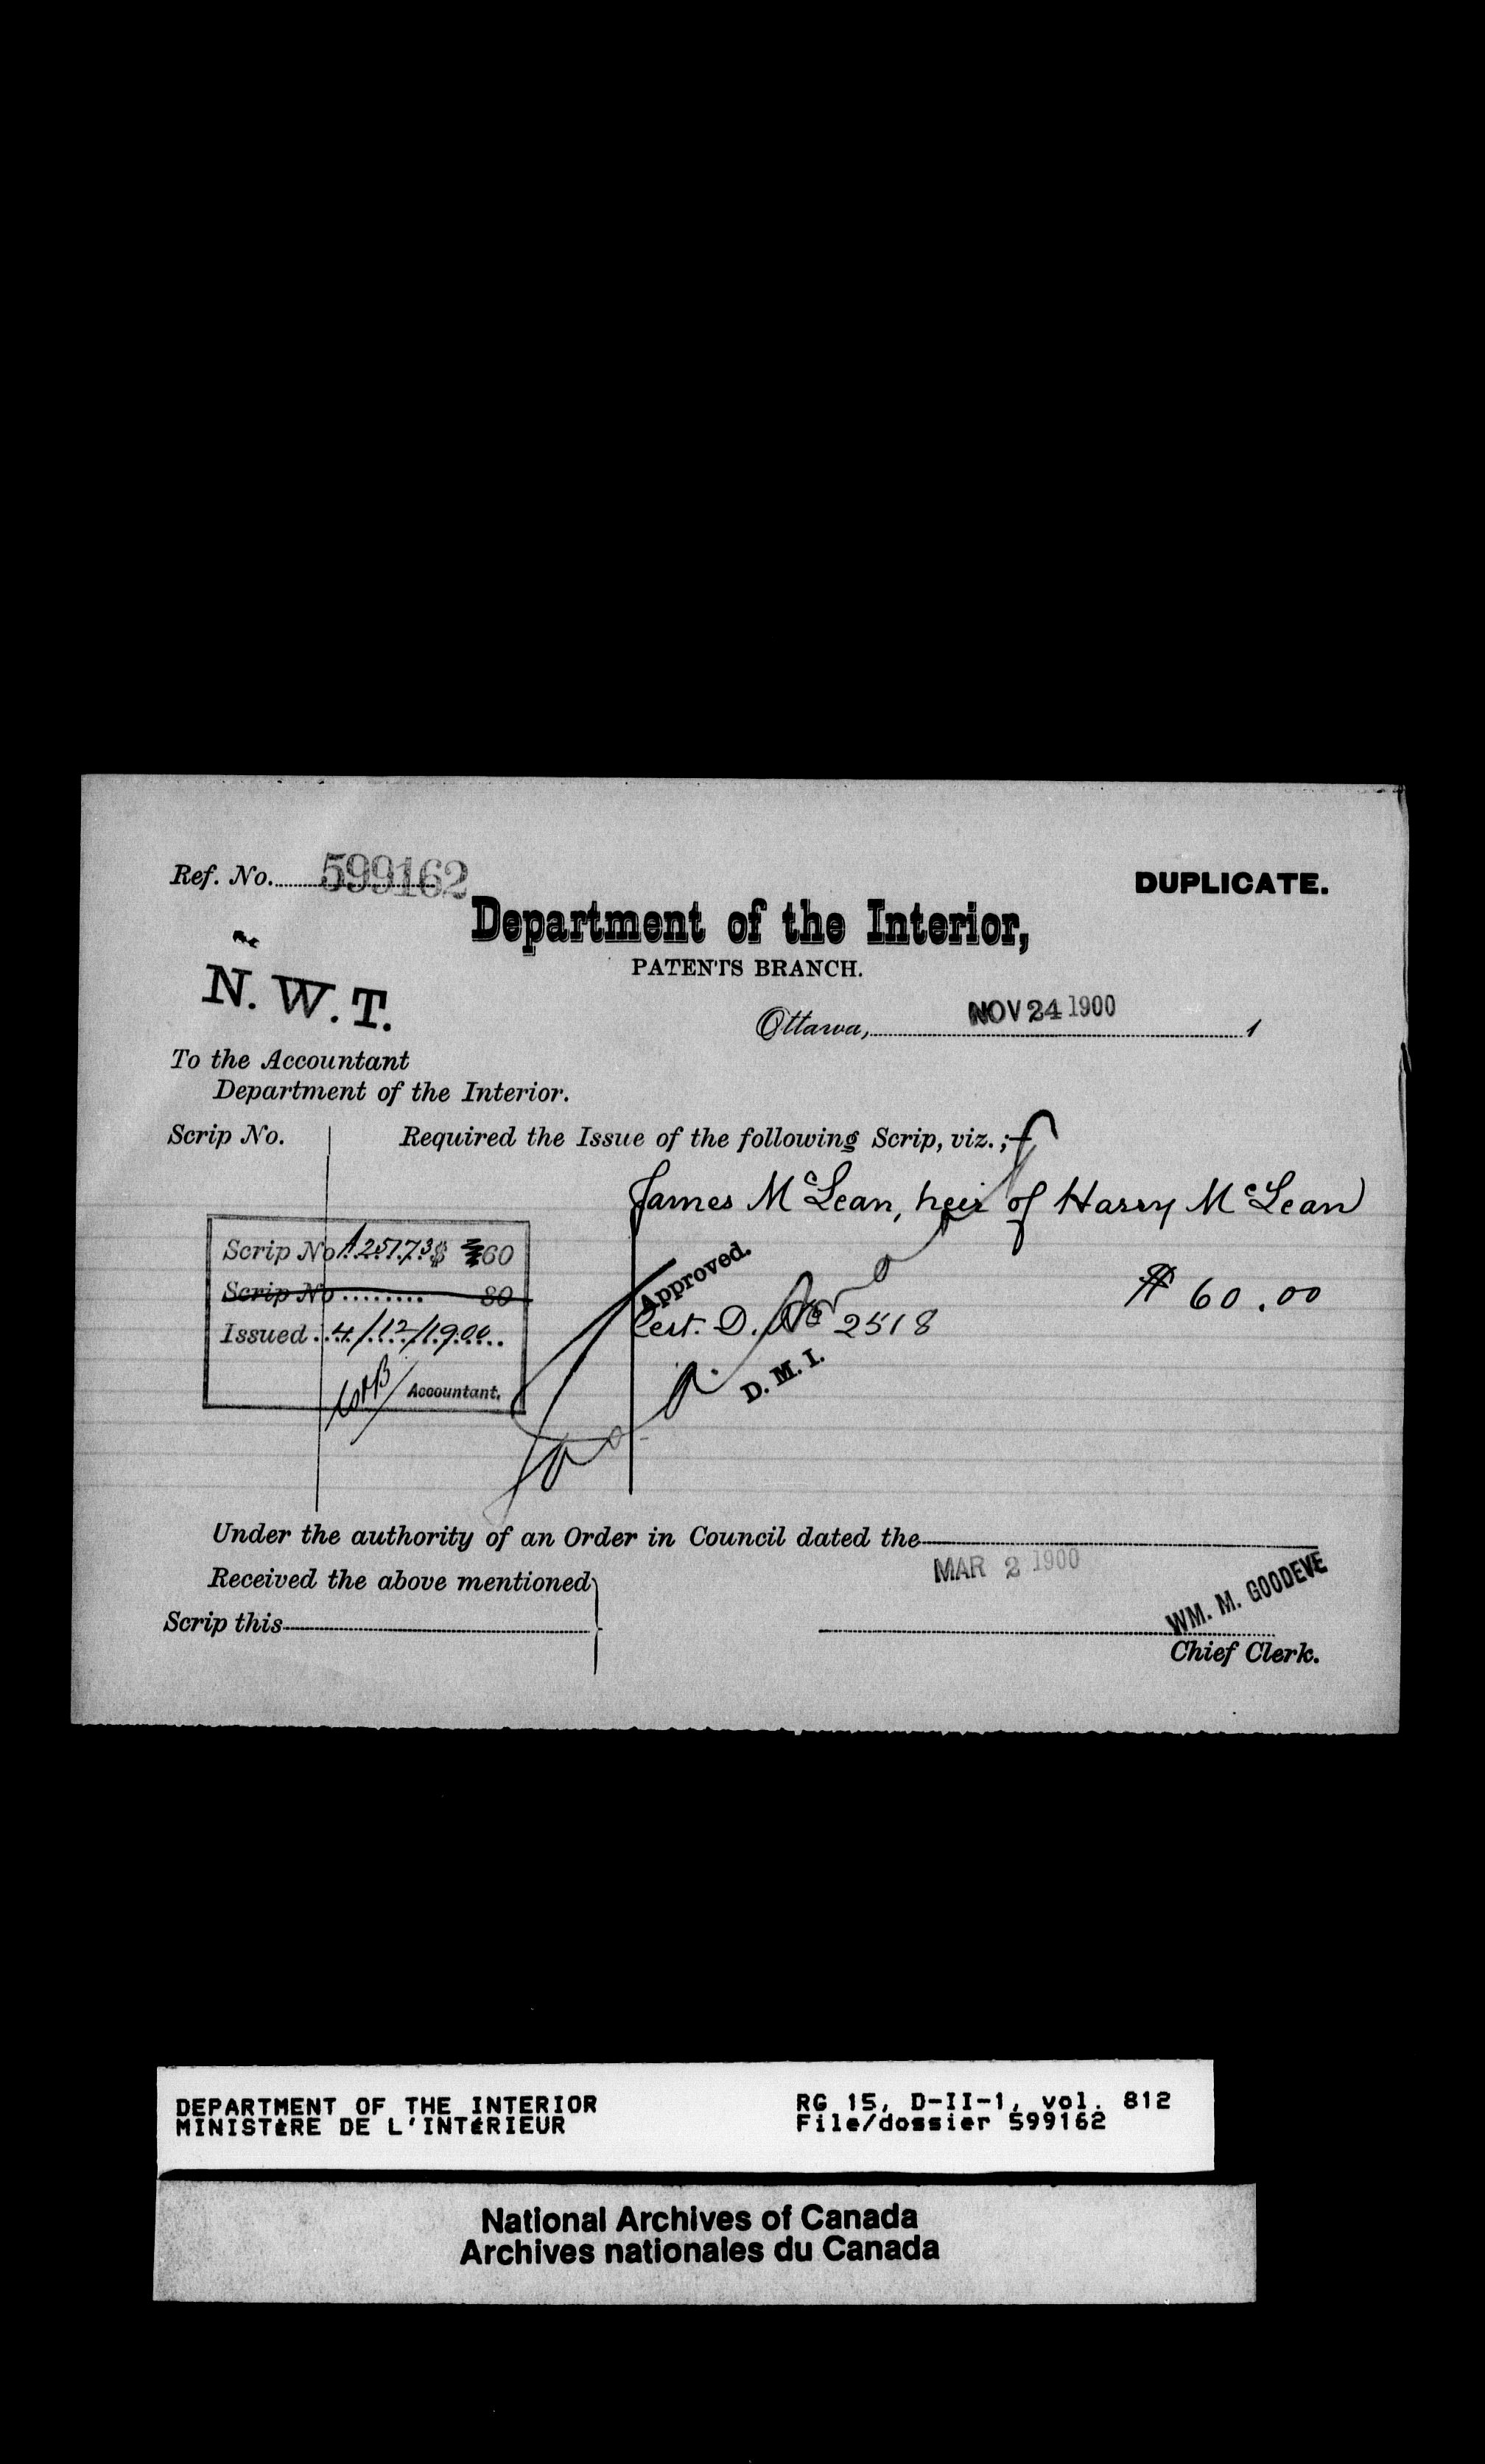 Ref. No. 599162
DUPLICATE.
Department of the Interior,
PATENTS BRANCH.
N. W. T.
Ottawa, NOV 24 1900 1
To the Accountant
Department of the Interior.
Scrip No. Required the Issue of the following Scrip, viz.;
James McLean, heir of Harry McLean
Scrip No A25173 $ 60
Scrip No ........ 80
Issued 4/12/1900
Accountant.
Approved.
$ 60.00
Cert. D. No 2518
D. M. I.
Under the authority of an Order in Council dated the
MAR 2 1900
Received the above mentioned
Scrip this
WM. M. GOODEVE
Chief Clerk.
DEPARTMENT OF THE INTERIOR RG 15, D-II-1, vol. 812
MINISTÈRE DE L'INTÉRIEUR File/dossier 599162
National Archives of Canada
Archives nationales du Canada